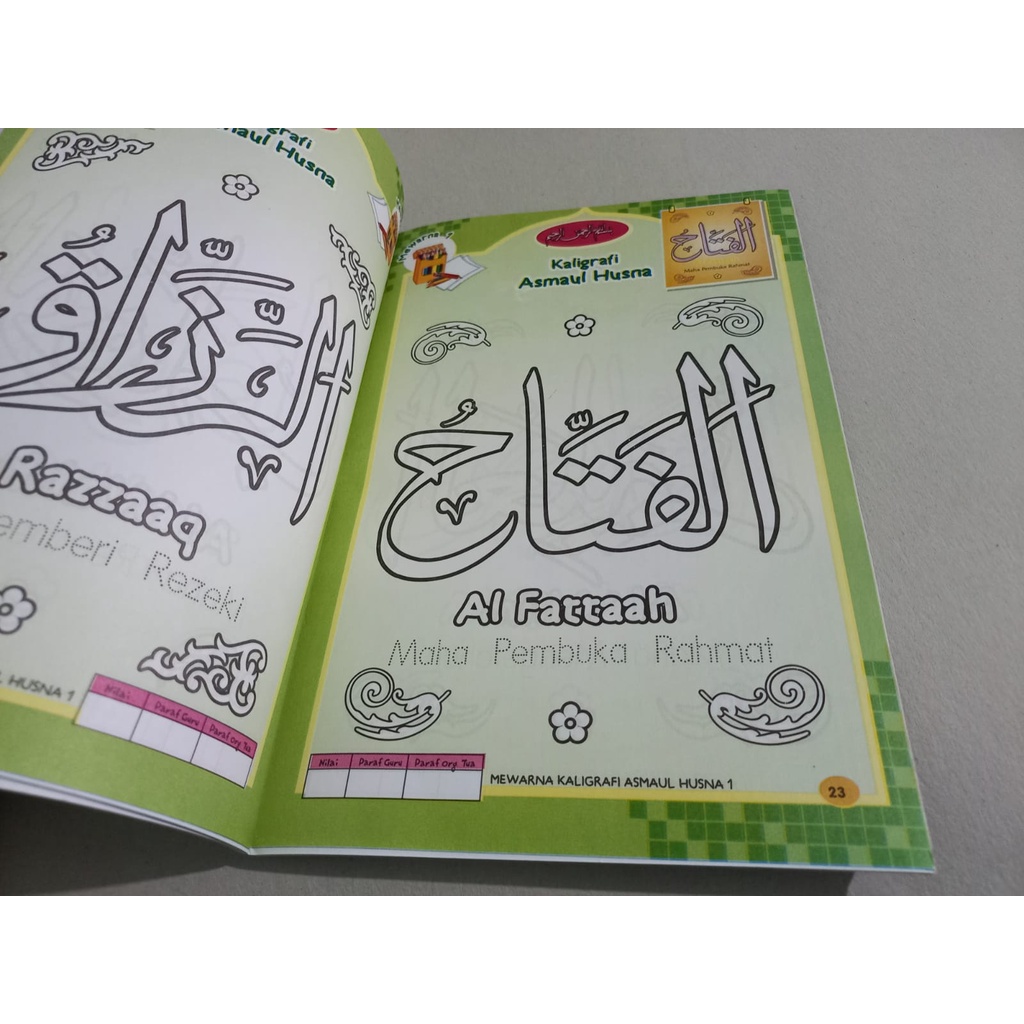 Husna
الرَّزَّاقُ
Razzaaq
Rezeki
HUSNA 1
Nilai Paraf Guru Paraf Org. Tua
Mewarna 1
بسم الله الرحمن الرحيم
Kaligrafi
Asmaul Husna
الفَتَّاحُ
Maha Pembuka Rahmat
الفَتَّاحُ
Al Fattaah
Maha Pembuka Rahmat
Nilai Paraf Guru Paraf Org. Tua
MEWARNA KALIGRAFI ASMAUL HUSNA 1
23